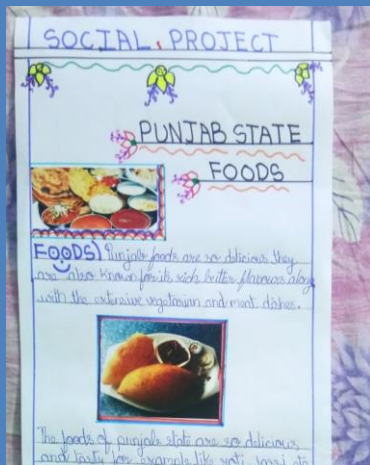 SOCIAL PROJECT
PUNJAB STATE
FOODS
FOODS) Punjab foods are so delicious they
are also known for its rich butter flavours along
with the extensive vegetarian and meat dishes.
The foods of punjab state are so delicious,
and tasty for example like roti,